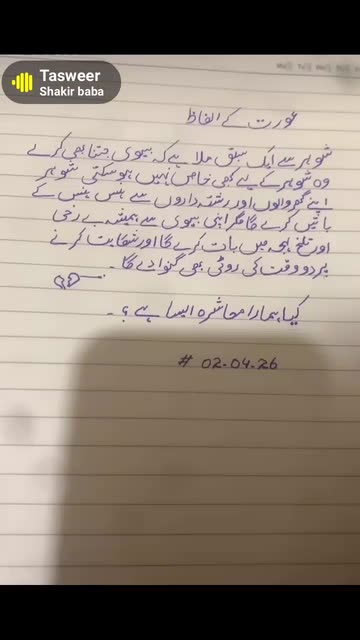 Tasweer
Shakir baba
عورت کے الفاظ
شوہر سے ایک سبق ملا ہے کہ بیوی جتنا بھی کرلے
وہ شوہر کے لیے کبھی خاص نہیں ہو سکتی شوہر
اپنے گھر والوں اور رشتہ داروں سے ہنس ہنس کے
باتیں کرے گا مگر اپنی بیوی سے ہمیشہ بے رحمی
اور تلخ لہجہ میں بات کرے گا اور شکایت کرنے
پر دو وقت کی روٹی بھی گنوا دے گا۔
کیا ہمارا معاشرہ ایسا ہے؟۔
# 02.04.26